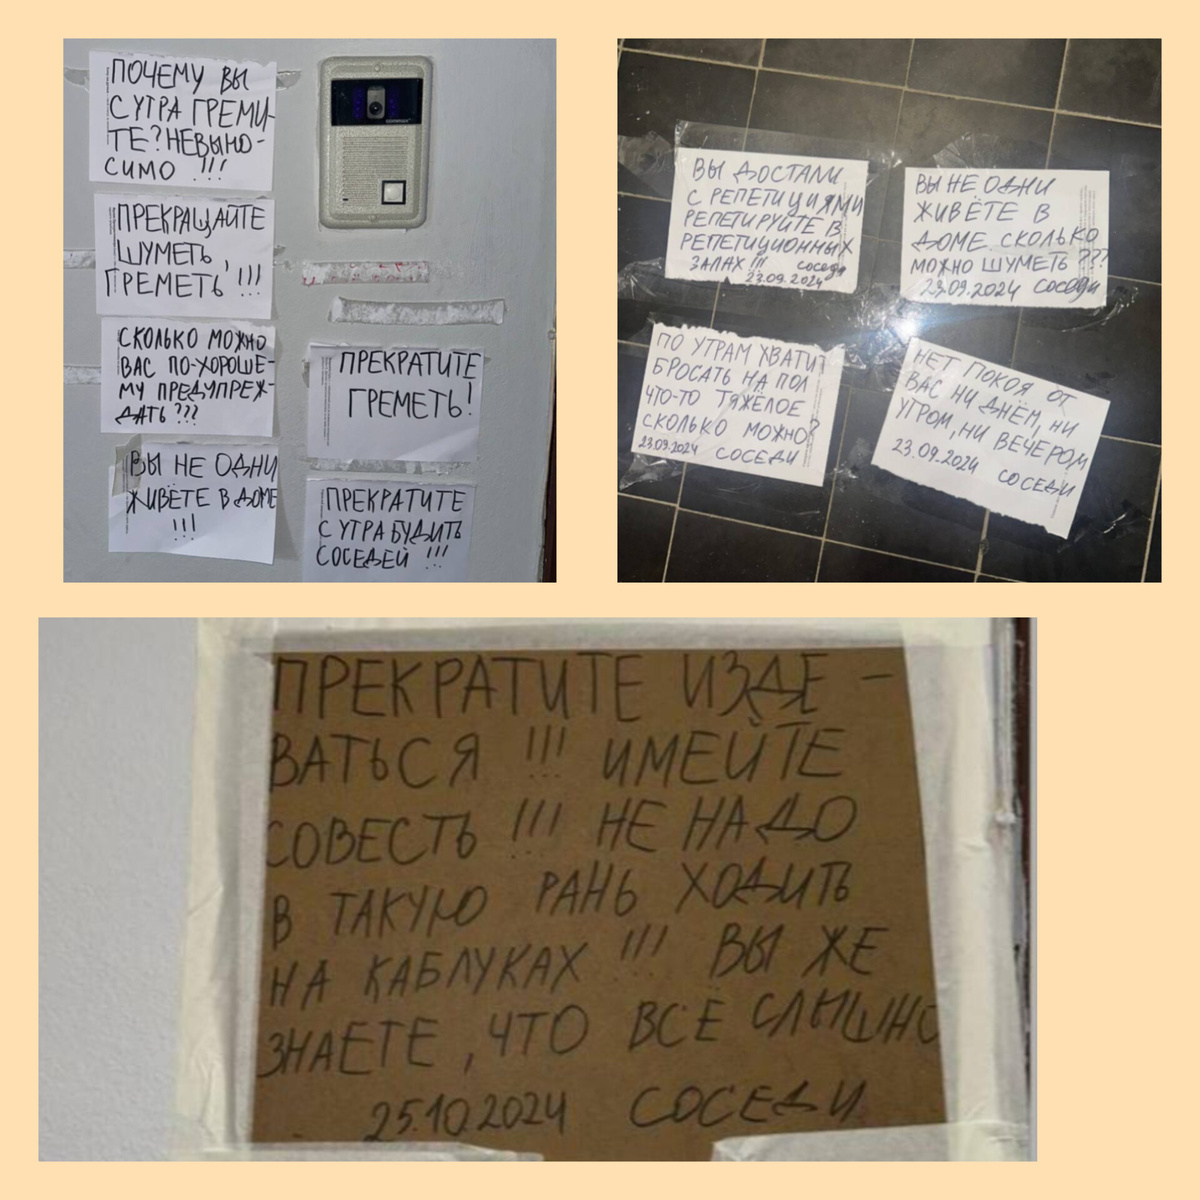 ПОЧЕМУ ВЫ
С УТРА ГРЕМИ-
ТЕ? НЕВЫНО-
СИМО !!!
ПРЕКРАЩАЙТЕ
ШУМЕТЬ,
ГРЕМЕТЬ !!!
СКОЛЬКО МОЖНО
ВАС ПО-ХОРОШЕ-
МУ ПРЕДУПРЕЖ-
ДАТЬ ???
ВЫ НЕ ОДНИ
ЖИВЁТЕ В ДОМЕ
!!!
ПРЕКРАТИТЕ
ГРЕМЕТЬ!
ПРЕКРАТИТЕ
С УТРА БУДИТЬ
СОСЕДЕЙ !!!
ВЫ ДОСТАЛИ
С РЕПЕТИЦИЯМИ
РЕПЕТИРУЙТЕ В
РЕПЕТИЦИОННЫХ
ЗАЛАХ !!! СОСЕДИ
23.09.2024
ВЫ НЕ ОДНИ
ЖИВЁТЕ В
ДОМЕ СКОЛЬКО
МОЖНО ШУМЕТЬ ???
23.09.2024 СОСЕДИ
ПО УТРАМ ХВАТИТ
БРОСАТЬ НА ПОЛ
ЧТО-ТО ТЯЖЁЛОЕ
СКОЛЬКО МОЖНО?
23.09.2024 СОСЕДИ
НЕТ ПОКОЯ ОТ
ВАС НИ ДНЁМ, НИ
УТРОМ, НИ ВЕЧЕРОМ
23.09.2024 СОСЕДИ
ПРЕКРАТИТЕ ИЗДЕ-
ВАТЬСЯ !!! ИМЕЙТЕ
СОВЕСТЬ !!! НЕ НАДО
В ТАКУЮ РАНЬ ХОДИТЬ
НА КАБЛУКАХ !!! ВЫ ЖЕ
ЗНАЕТЕ, ЧТО ВСЁ СЛЫШНО
25.10.2024 СОСЕДИ